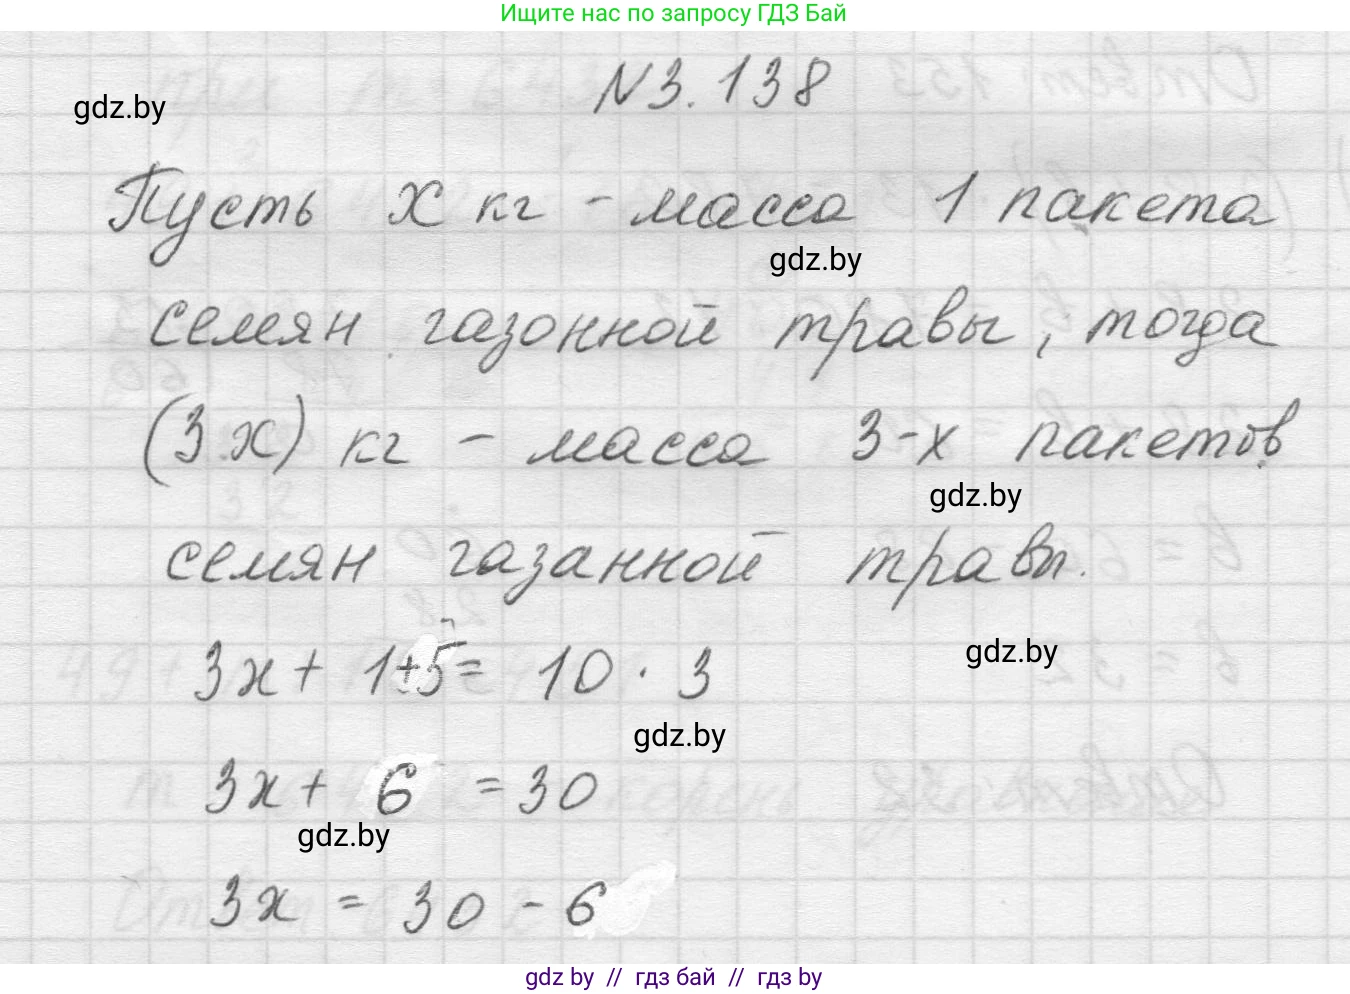 Ищите нас по запросу ГДЗ Бай
N3.138
gdz.by
Пусть х кг - масса 1 пакета
gdz.by
семян газонной травы, тогда
(3х) кг - масса 3-х пакетов
gdz.by
семян газанной травы.
3х + 1+5 = 10 · 3
gdz.by
gdz.by
3х + 6 = 30
gdz.by
3х = 30 - 6
gdz by // гдз бай // гдз by